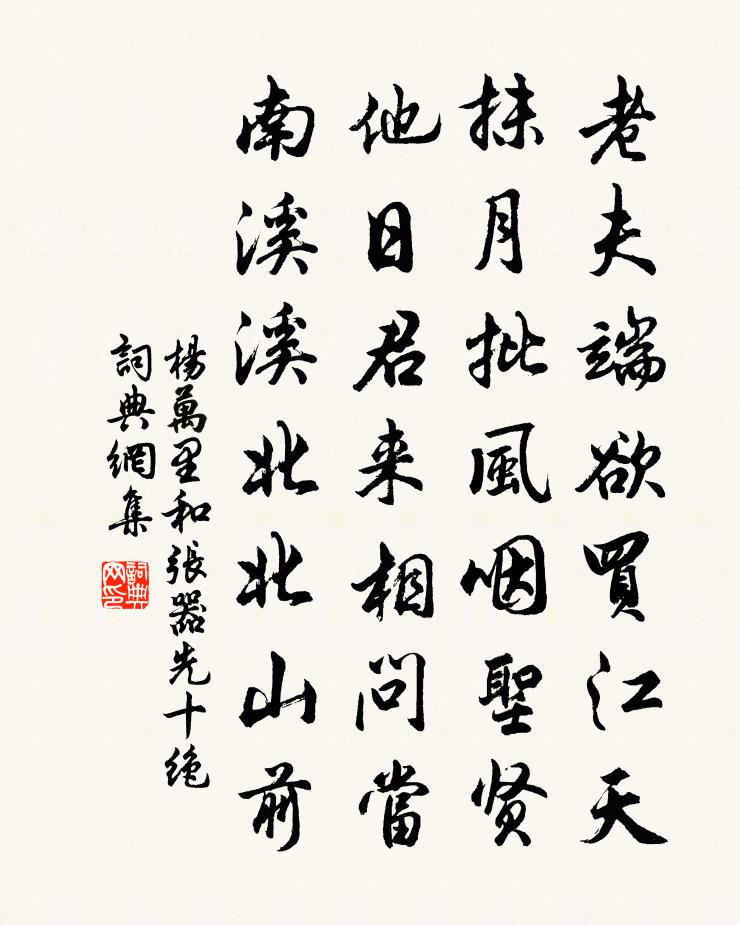 老夫端欲買江天
抹月批風咽聖贤
他日君来相問當
南溪溪北北山前
楊萬里和張器先十绝
詞典網集
詞典
网印